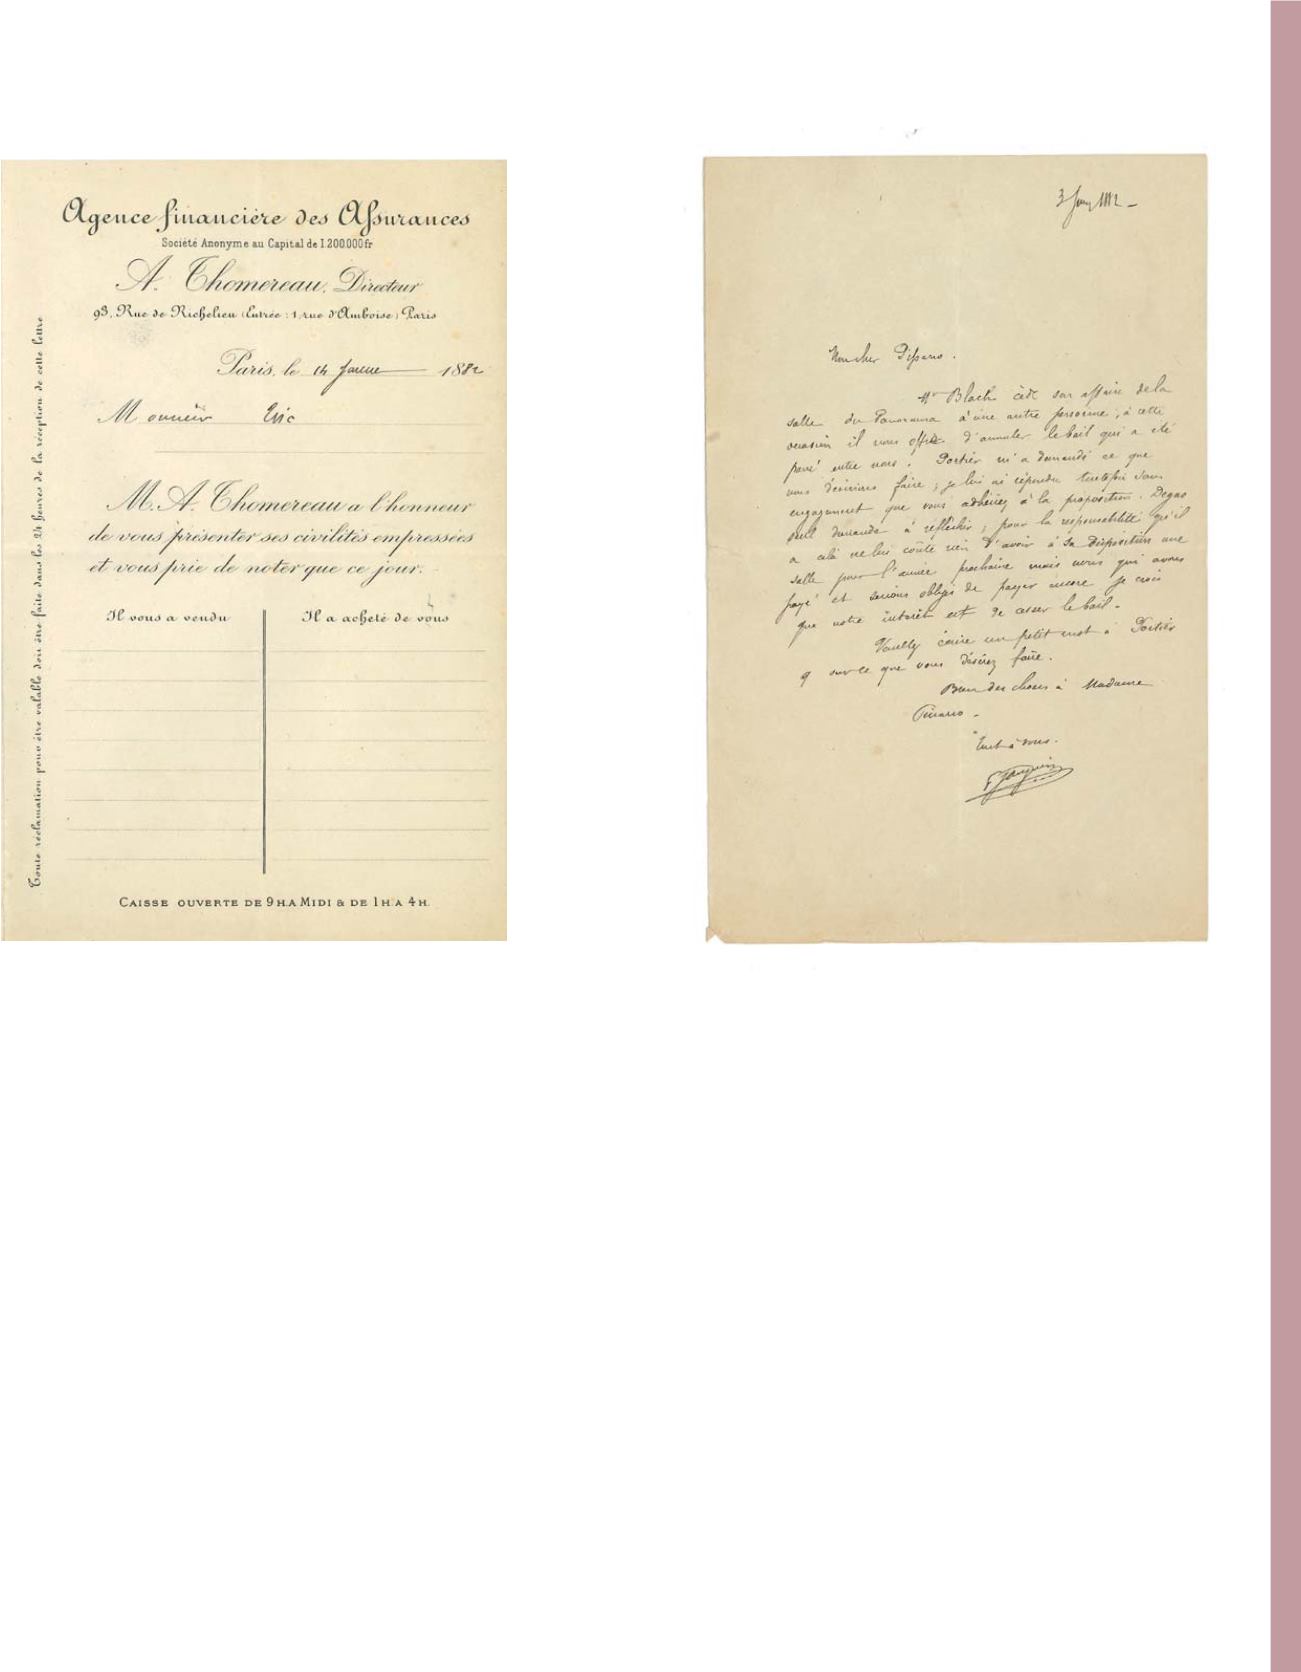 Agence financière des Assurances
Société Anonyme au Capital de 1.200.000 fr
A. Thomereau, Directeur
93, Rue de Richelieu (Entrée : 1, rue d'Amboise) Paris
Paris, le 14 1882
Monsieur Eric
M. A. Thomereau a l'honneur
de vous présenter ses civilités empressées
et vous prie de noter que ce jour.
Il vous a vendu Il a acheté de vous
CAISSE OUVERTE DE 9 H. A MIDI & DE 1 H. A 4 H.
Toute réclamation pour être valable doit être faite dans les 24 heures de la réception de cette lettre
3 1882 -
Mon cher
Mr Bloch cède son affaire de la
salle du Panorama à une autre personne ; à cette
occasion il nous offre d'annuler le bail qui a été
passé entre nous. Portier m'a demandé ce que
nous désirions faire ; je lui ai répondu toutefois sans
engagement que vous adhériez à la proposition. Degas
seul demande à réfléchir ; pour la responsabilité qu'il
a celà ne lui coûte rien d'avoir à sa disposition une
salle pour l'année prochaine mais nous qui avons
payé et serions obligés de payer encore je crois
que notre intérêt est de casser le bail -
Veuillez écrire un petit mot à Portier
sur ce que vous désirez faire.
Bien des choses à Madame
Pissarro -
Tout à vous.
P Gauguin